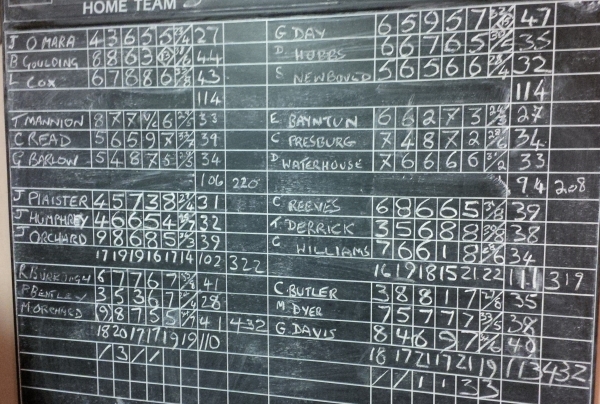 HOME TEAM
J O'MARA 4 3 6 5 5 27 G DAY 6 5 9 5 7 47
B GOULDING 8 8 6 3 44 D HOBBS 6 6 7 6 5 35
L COX 6 7 8 8 6 43 S NEWBOUND 5 6 5 6 6 32
114 114
T MANNION 8 7 7 33 E BAYNTUN 6 6 2 7 3 27
C READ 5 6 5 9 7 39 C PRESBURG 7 4 8 7 2 34
G BARLOW 5 4 8 7 5 34 D WATERHOUSE 7 6 6 6 6 33
106 220 94 208
J PLAISTER 4 5 7 3 8 31 C REEVES 6 8 6 6 5 39
J HUMPHREY 4 6 6 5 4 32 T DERRICK 3 5 6 8 8 38
J ORCHARD 9 8 6 8 5 39 G WILLIAMS 7 6 6 1 8 34
17 19 19 16 17 14 102 322 16 19 18 15 21 22 111 319
6 7 7 6 7 41 C. BUTLER 3 8 8 1 7 35
P BENTLEY 3 5 3 6 7 28 M DYER 7 5 7 7 7 38
M ORCHARD 9 8 7 5 5 41 432 G DAVIS 8 4 6 9 7 40
18 20 17 17 19 19 110 18 17 21 17 21 19 113 432
/ 3 / / / / 1 1 3 3